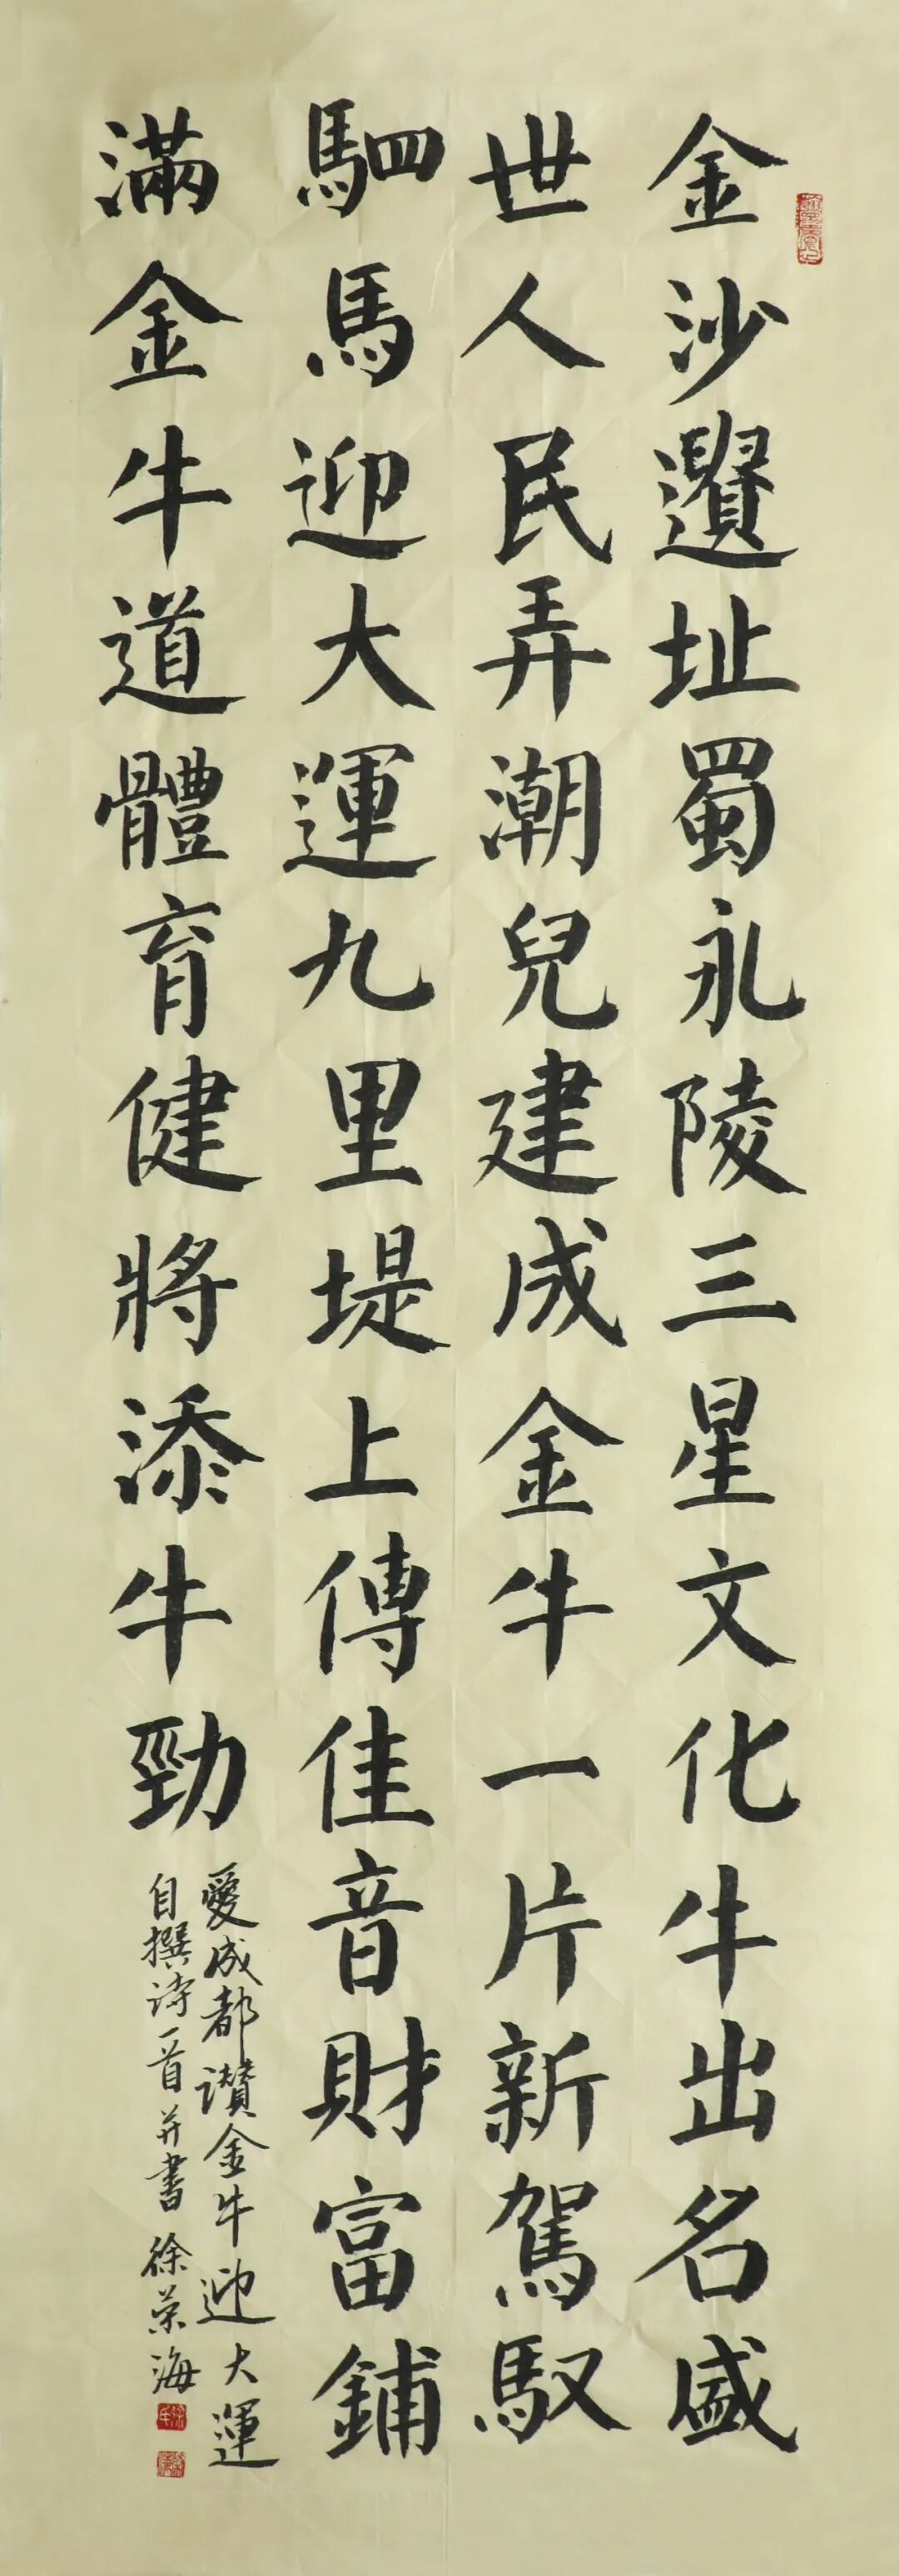 金沙遺址蜀永陵三星文化牛出名盛
世人民弄潮兒建成金牛一片新駕馭
駟馬迎大運九里堤上傳佳音財富鋪
滿金牛道體育健將添牛勁
愛成都讚金牛迎大運
自撰诗一首并書 徐荣海